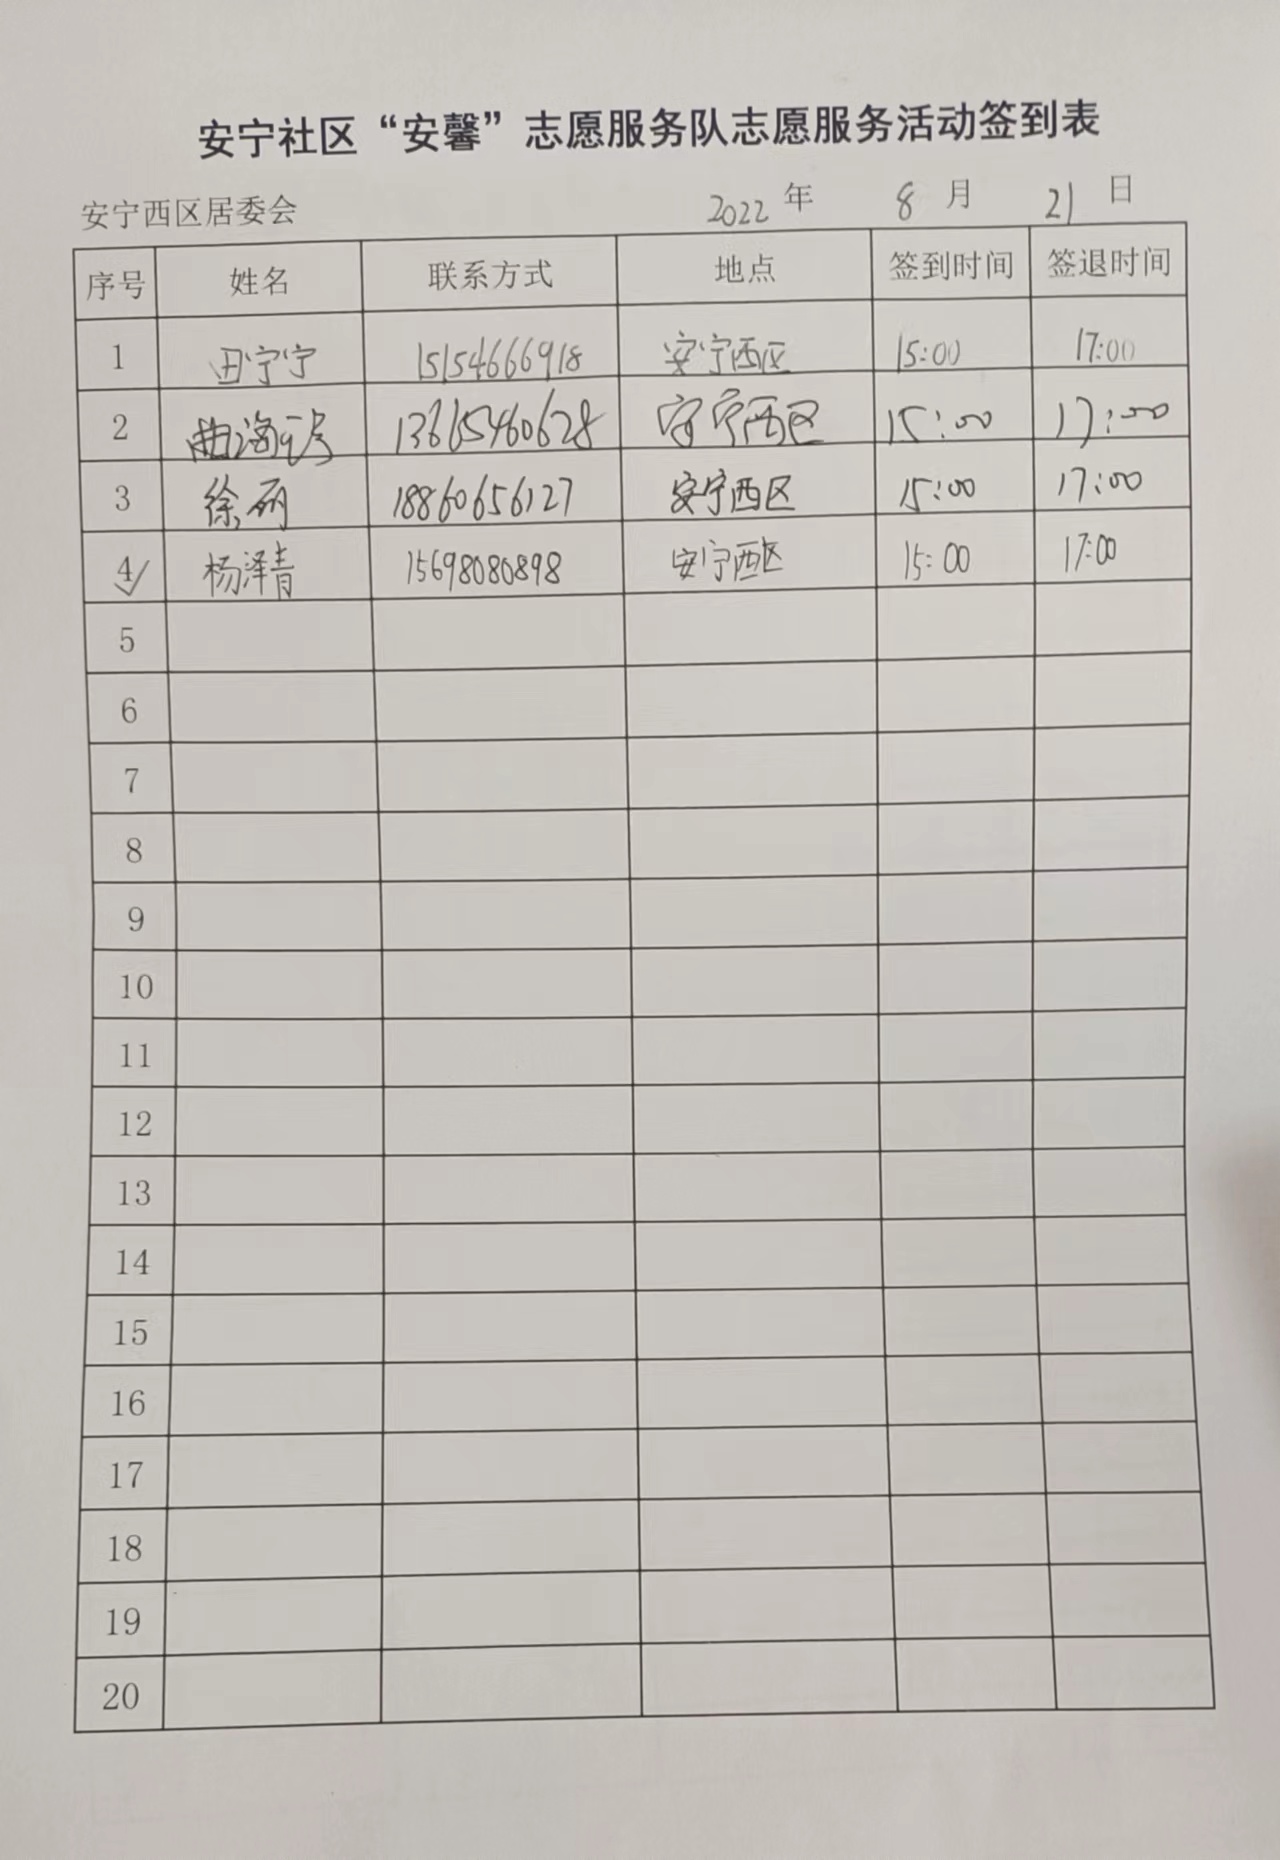 安宁社区“安馨”志愿服务队志愿服务活动签到表
安宁西区居委会 2022 年 8 月 21 日
序号 姓名 联系方式 地点 签到时间 签退时间
1 田宁宁 15154666918 安宁西区 15:00 17:00
2 曲海 13615460628 安宁西区 15:00 17:00
3 徐丽 18860656127 安宁西区 15:00 17:00
4 杨泽青 15698080898 安宁西区 15:00 17:00
5
6
7
8
9
10
11
12
13
14
15
16
17
18
19
20